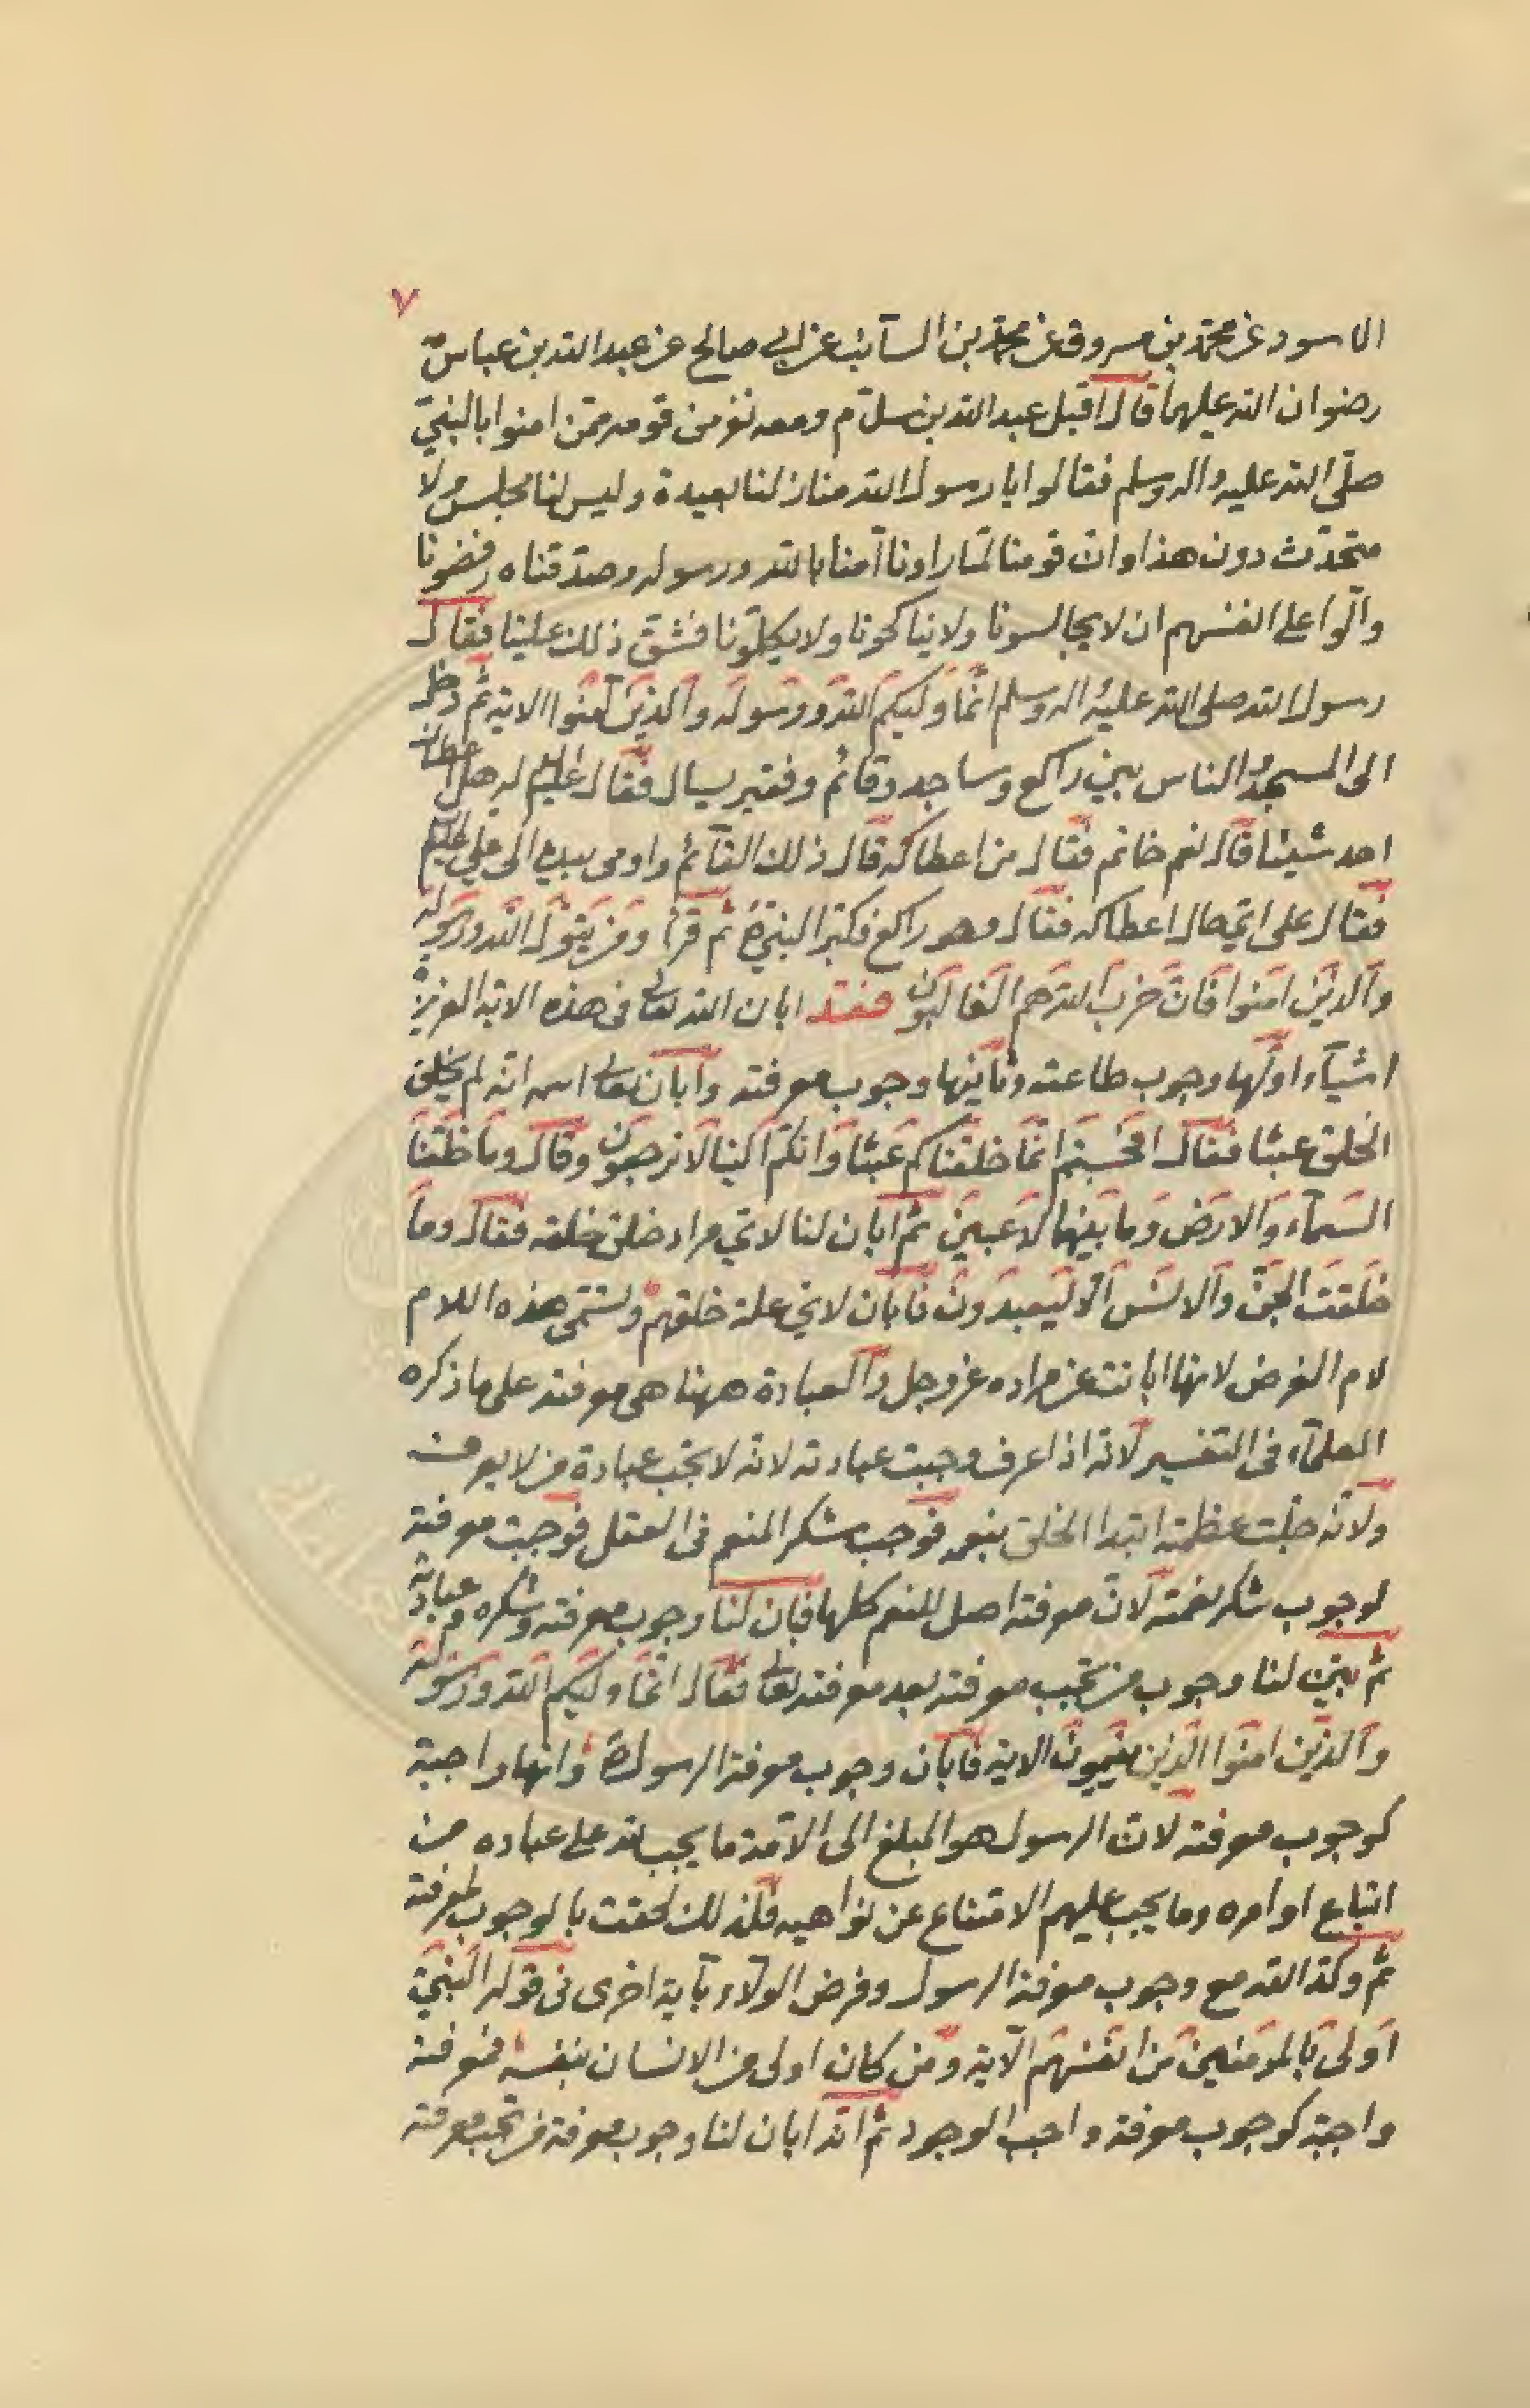 ٧
الاسود عن محمد بن مسروق عن محمد بن السآئب عن ابي صالح عن عبد الله بن عباس
رضوان الله عليهما قال اقبل عبد الله بن سلام ومعه نفر من قومه ممن امنوا بالنبي
صلى الله عليه واله وسلم فقالوا يا رسول الله منازلنا بعيدة وليس لنا مجلس ولا
متحدث دون هذا وان قومنا لما راونا آمنا بالله ورسوله وصدقناه رفضونا
وآلوا على انفسهم ان لا يجالسونا ولا يناكحونا ولا يكلمونا فشق ذلك علينا فقال
رسول الله صلى الله عليه واله وسلم انما وليكم الله ورسوله والذين آمنوا الاية ثم دخل
الى المسجد والناس بين راكع وساجد وقائم وفقير يسال فقال عليلم له هل اعطاك
احد شيئا قال نعم خاتم فقال من اعطاكه قال ذلك القآئم واومى بيده الى علي عليلم
فقال على اي حال اعطاكه فقال وهو راكع فكبر النبي ص ثم قرأ ومن يتول الله ورسوله
والذين امنوا فان حزب الله هم الغالبون فقد ابان الله تعالى في هذه الاية العزيزة
اشيآء اولها وجوب طاعته وثانيها وجوب معرفته وابان تعالى اسمه انه لم يخلق
الخلق عبثا فقال افحسبتم انما خلقناكم عبثا وانكم الينا لا ترجعون وقال وما خلقنا
السمآء والارض وما بينهما لاعبين ثم ابان لنا لاي مراد خلق خلقه فقال وما
خلقت الجن والانس الا ليعبدون فابان لاي علة خلقهم وتسمى هذه اللام
لام الغرض لانها ابانت عن مراده عز وجل والعبادة ههنا هي معرفته على ما ذكره
العلمآء في التفسير لانه اذا عرف وجبت عبادته لانه لا يجب عبادة من لا يعرف
ولانه جلت عظمته ابتدا الخلق بنعمه فوجب شكر المنعم في العقل فوجبت معرفته
لوجوب شكر نعمته لان معرفته اصل للنعم كلها فبان لنا وجوب معرفته وشكره وعبادته
ثم بين لنا وجوب من تجب معرفته بعد معرفته تعالى فقال انما وليكم الله ورسوله
والذين امنوا الذين يقيمون الاية فابان وجوب معرفة الرسول ص وانها واجبة
كوجوب معرفته لان الرسول هو المبلغ الى الامة ما يجب لله على عباده من
اتباع اوامره وما يجب عليهم الامتناع عن نواهيه فلذلك لحقت بالوجوب لمعرفته
ثم وكد الله مع وجوب معرفة الرسول وفرض الولاء بآية اخرى في قوله النبي
اولى بالمؤمنين من انفسهم الآية ومن كان اولى من الانسان بنفسه فمعرفته
واجبة كوجوب معرفة واجب الوجود ثم انه ابان لنا وجوب معرفة من تجب معرفته